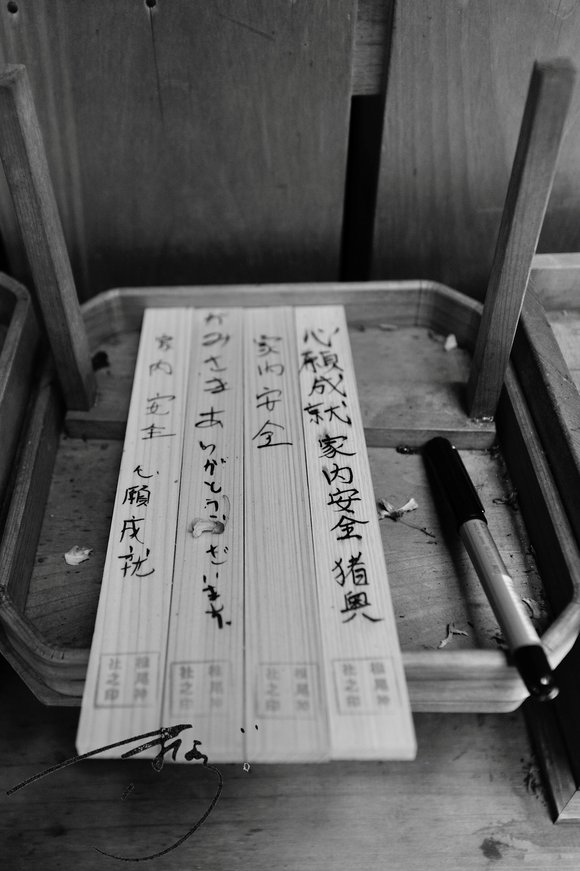 心願成就 家内安全 猪奥
家内安全
かみさま ありがとうございます。
家内安全 心願成就
椎尾神
社之印
椎尾神
社之印
椎尾神
社之印
椎尾神
社之印